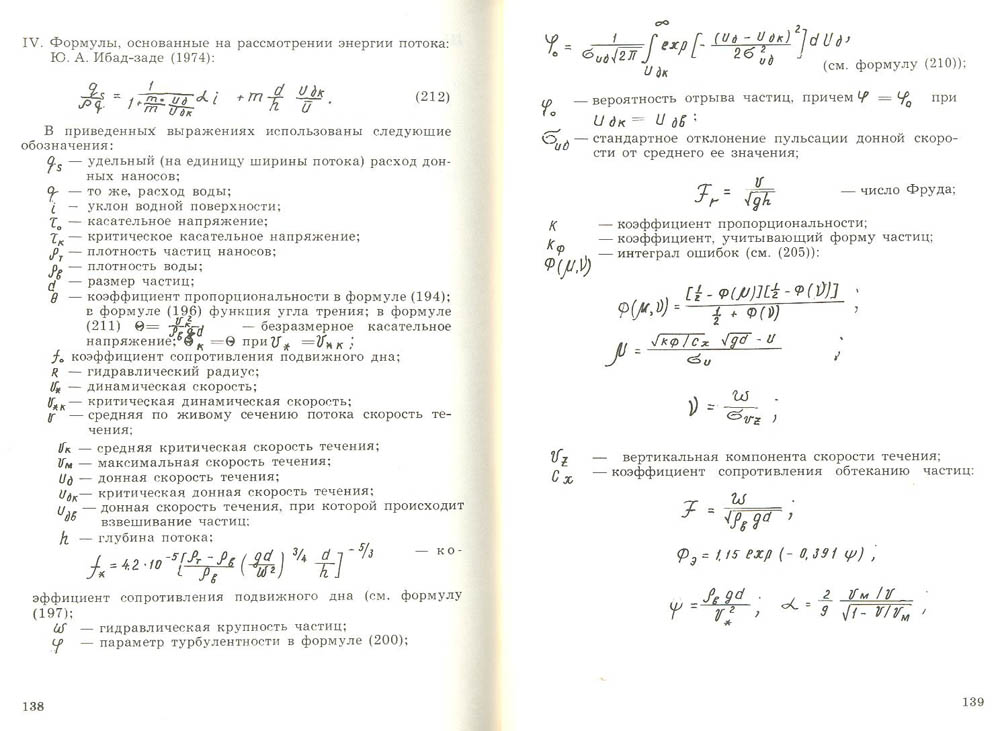 IV. Формулы, основанные на рассмотрении энергии потока:
Ю. А. Ибад-заде (1974):
(212)
В приведенных выражениях использованы следующие
обозначения:
q_s — удельный (на единицу ширины потока) расход дон-
ных наносов;
q — то же, расход воды;
i — уклон водной поверхности;
τ_о — касательное напряжение;
τ_к — критическое касательное напряжение;
ρ_т — плотность частиц наносов;
ρ_в — плотность воды;
d — размер частиц;
θ — коэффициент пропорциональности в формуле (194);
в формуле (196) функция угла трения; в формуле
(211) Θ= — безразмерное касательное
напряжение; Θ_к =Θ при υ_* =υ_*к ;
f_о коэффициент сопротивления подвижного дна;
R — гидравлический радиус;
υ_* — динамическая скорость;
υ_*к — критическая динамическая скорость;
υ — средняя по живому сечению потока скорость те-
чения;
υ_к — средняя критическая скорость течения;
υ_м — максимальная скорость течения;
U_д — донная скорость течения;
U_дк — критическая донная скорость течения;
U_дв — донная скорость течения, при которой происходит
взвешивание частиц;
h — глубина потока;
f_к = 4.2·10^-5 [(ρ_т - ρ_в)/ρ_в (gd/ω²)^3/4 d/h]^-5/3 — ко-
эффициент сопротивления подвижного дна (см. формулу
(197);
ω — гидравлическая крупность частиц;
φ — параметр турбулентности в формуле (200);
138
φ_о = 1/(σ_uд√2π) ∫_{U_дк}^∞ exp[- (U_д - U_дк)²/2σ²_uд] d U_д,
(см. формулу (210));
φ_о — вероятность отрыва частиц, причем φ = φ_о при
U_дк = U_дв ;
σ_uд — стандартное отклонение пульсации донной скоро-
сти от среднего ее значения;
F_r = υ/√gh — число Фруда;
К — коэффициент пропорциональности;
К_ф — коэффициент, учитывающий форму частиц;
Φ(μ,ν) — интеграл ошибок (см. (205)):
Φ(μ,ν) = [½ - Φ(μ)][½ - Φ(ν)] / (½ + Φ(ν)) ;
μ = (√к_ф/С_х √gd - u)/σ_u ;
ν = ω/σ_υz ;
υ_z — вертикальная компонента скорости течения;
С_х — коэффициент сопротивления обтеканию частиц:
F = ω/√ρ_в gd ;
Φ_э = 1,15 exp (- 0,391 ψ) ;
ψ = ρ_в gd/υ²_* , α = 2/9 υ_м/υ / √1- υ/υ_м ,
139